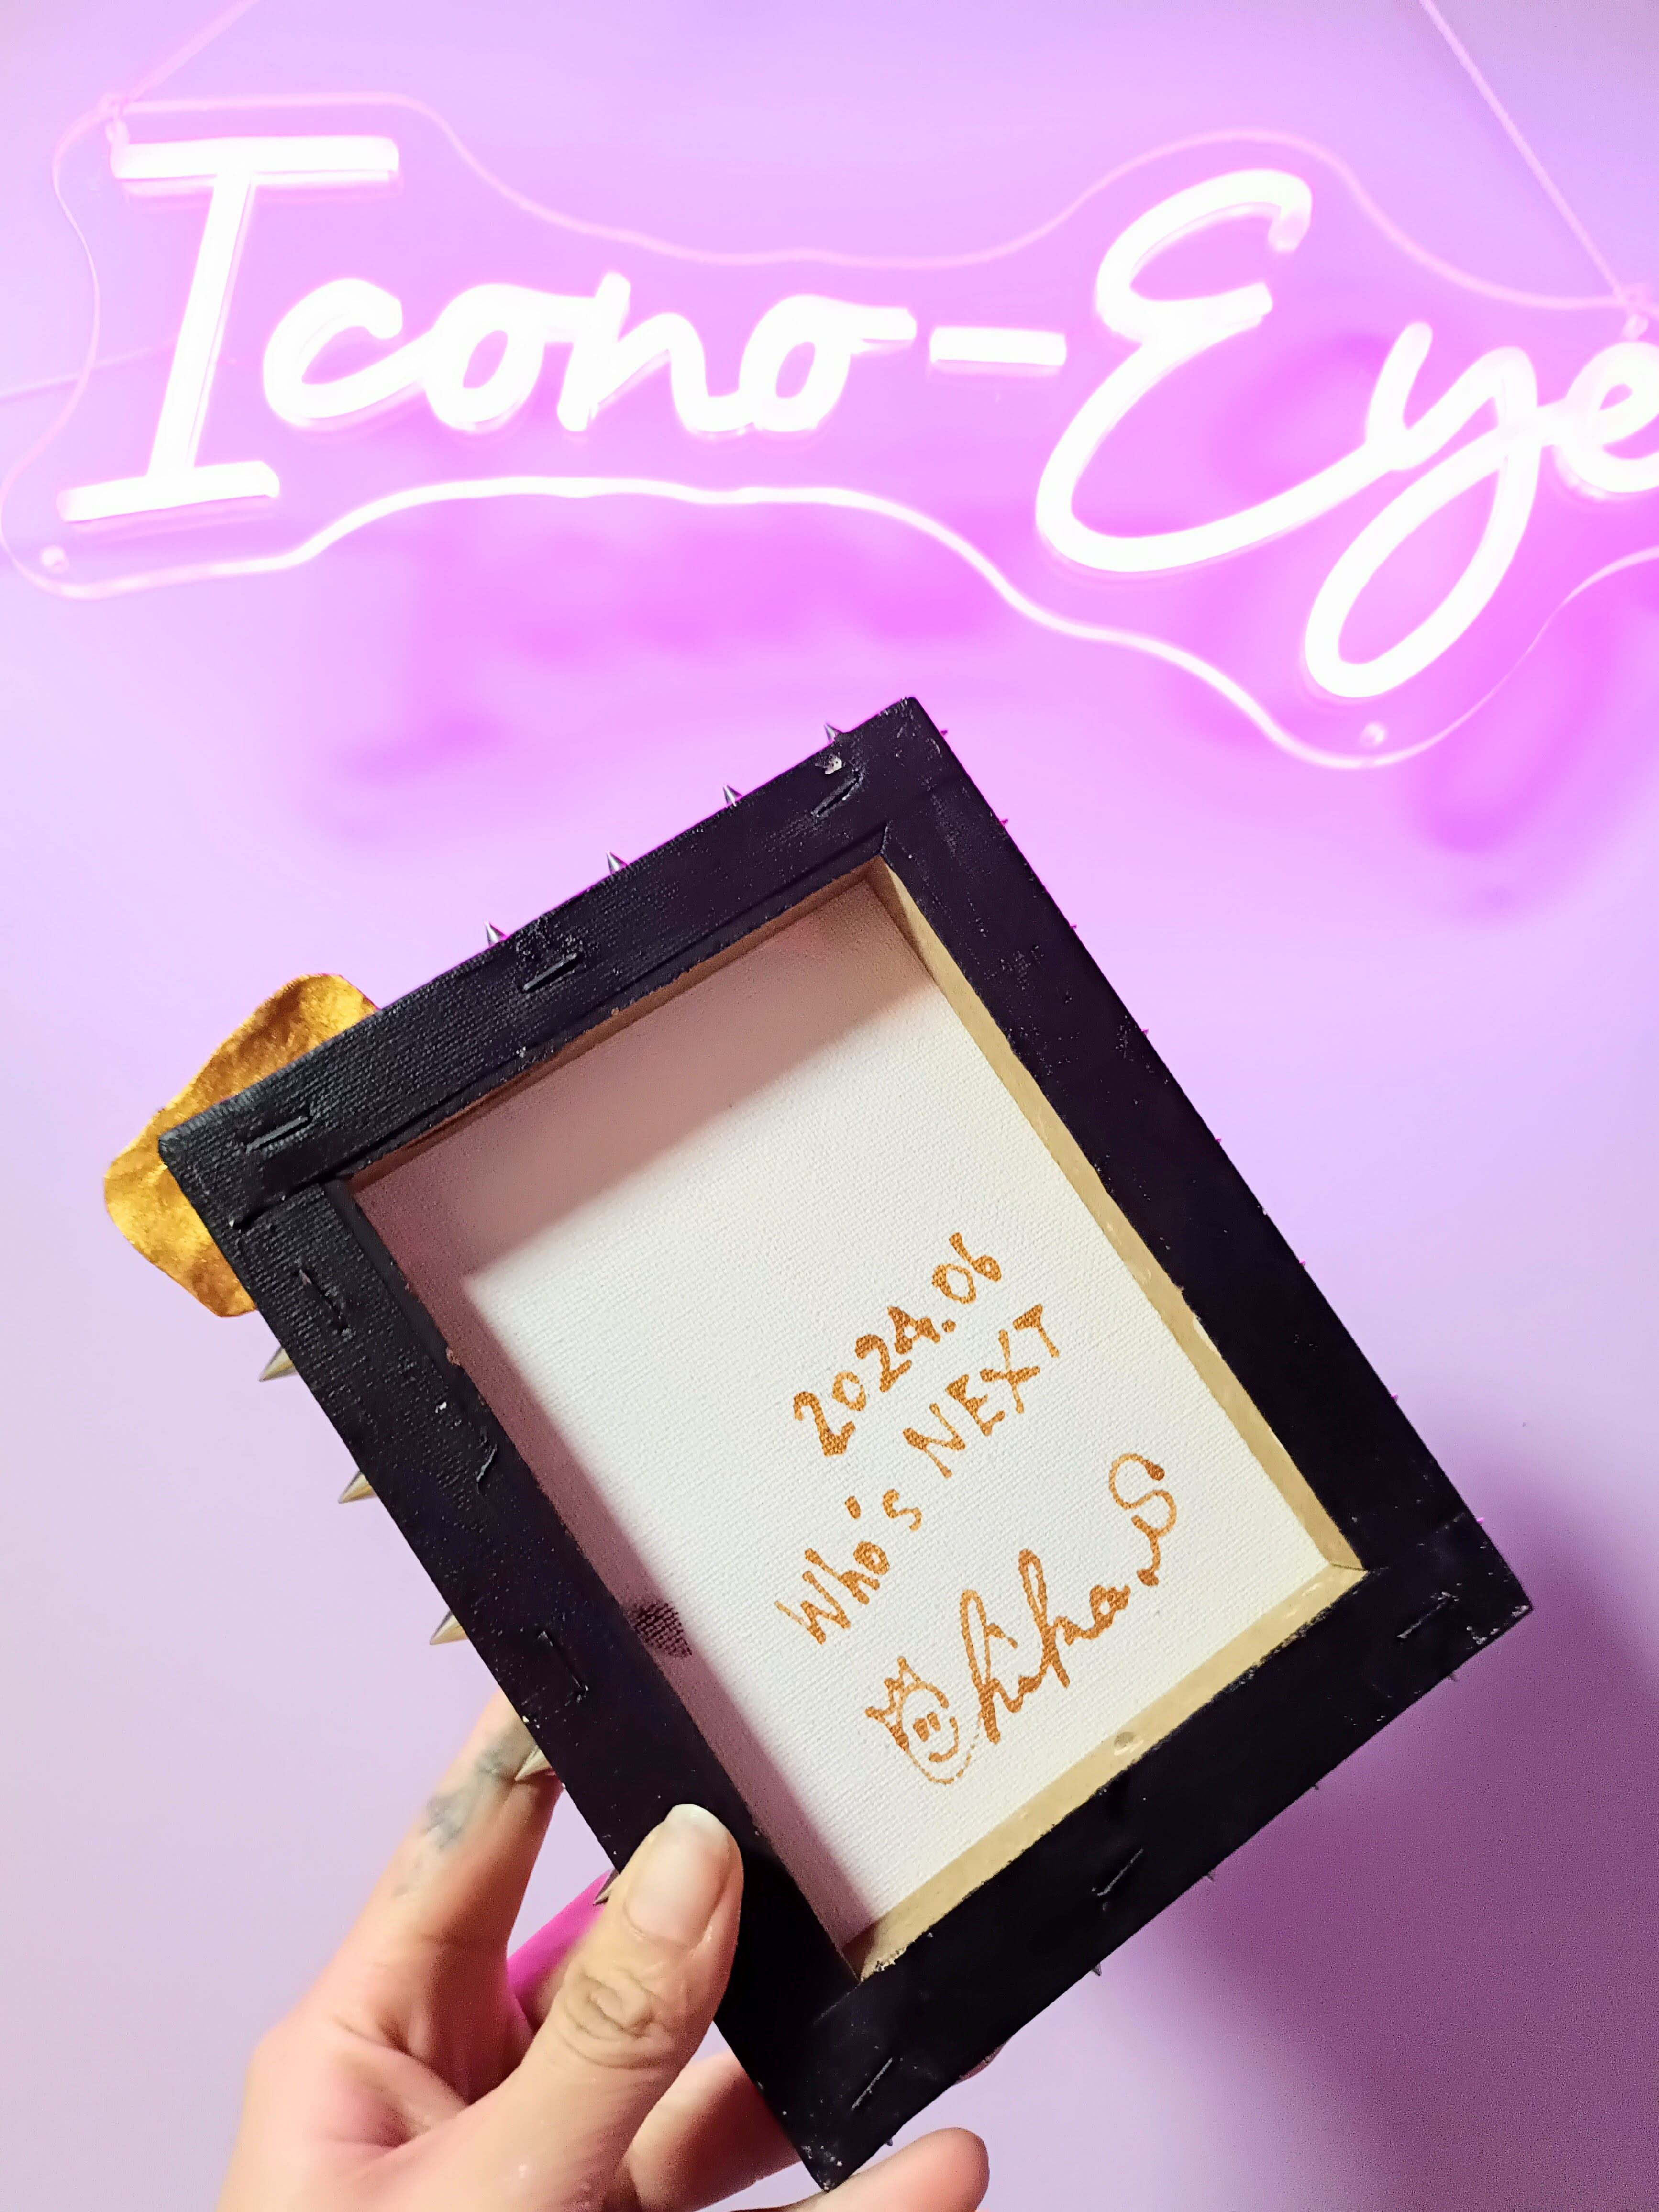 Icono-Eye
2024.06
Who's NEXT